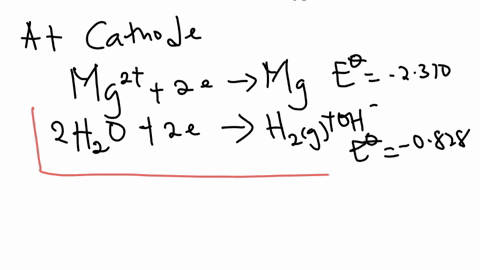 At Cathode
Mg²⁺ + 2e → Mg E° = -2.370
2H₂O + 2e → H₂(g) + OH⁻
E° = -0.828